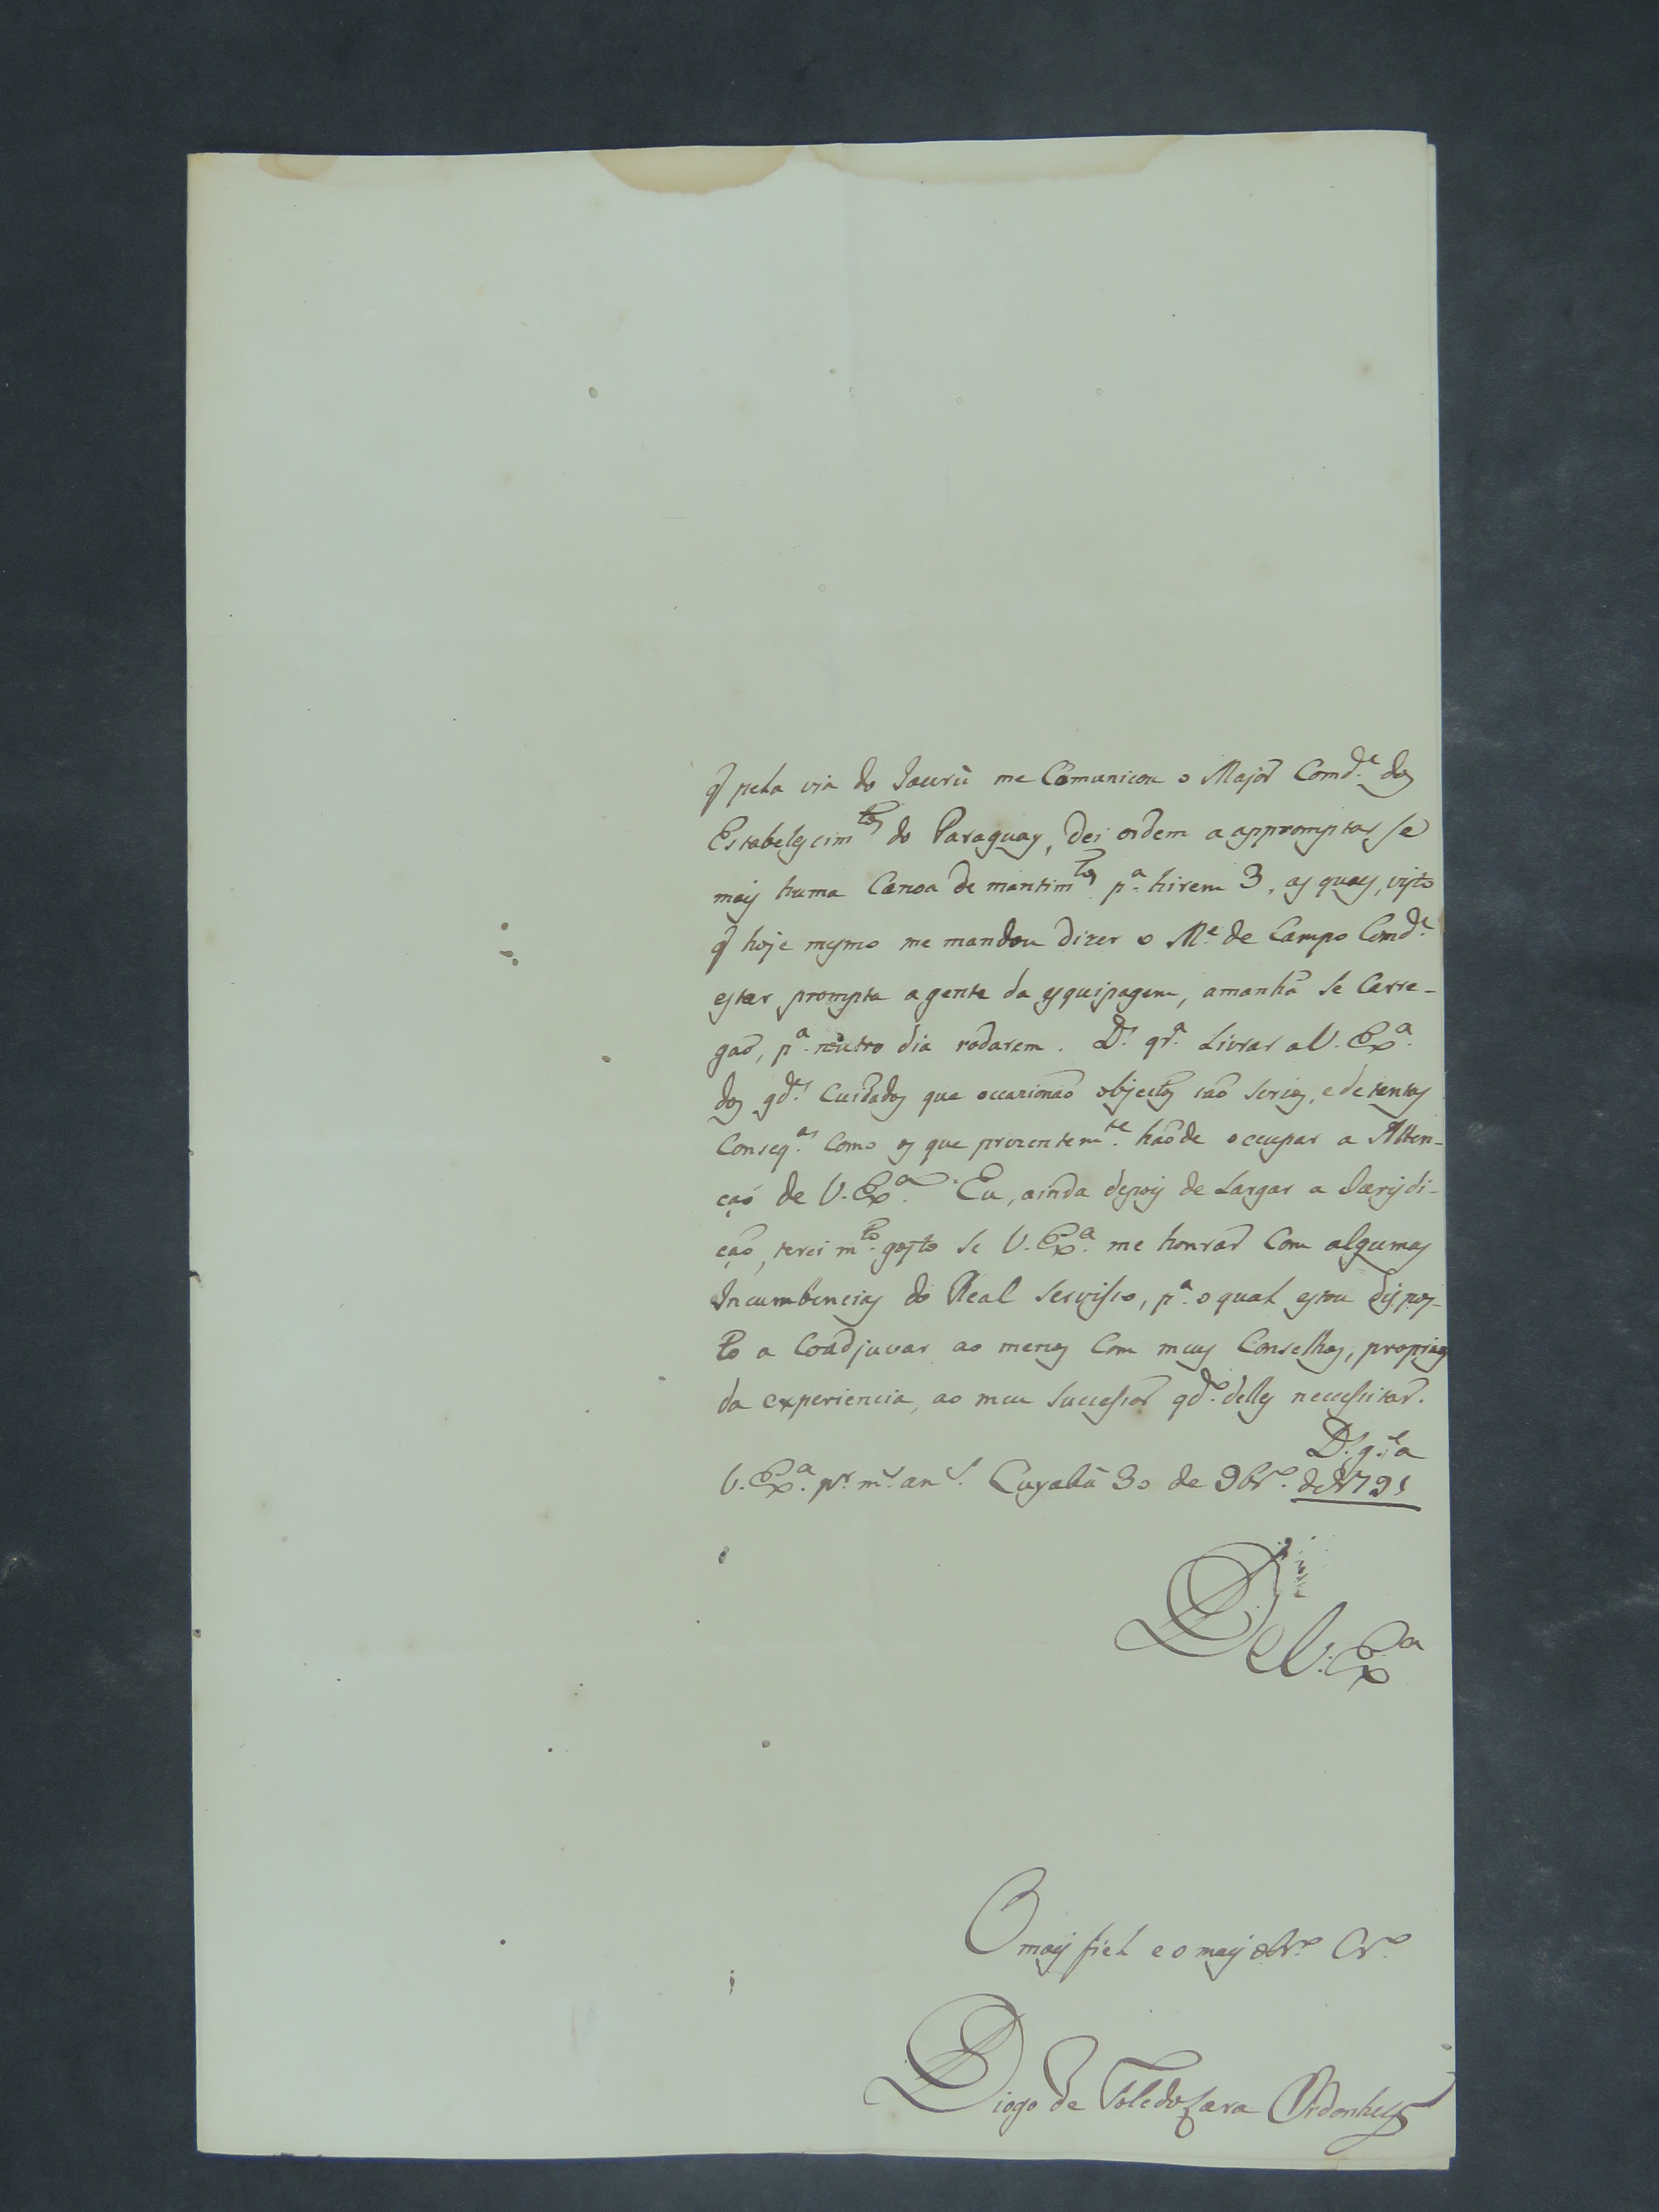 q̃ pela via do Jaurù me Comunicou o Major Comd.e dos
Estabelescim.tos do Paraguay, dei ordem a appromptar se
mais huma Canoa de mantim.tos p.a hirem 3, as quaes, visto
q̃ hoje mesmo me mandou dizer o M.e de Campo Comd.e
estar prompta a gente da esquipagem, amanhã se Carre-
gaõ, p.a noutro dia rodarem. D.s qr.a Livrar a V. Ex.a
dos gd.es Cuidados que occazionaõ objectos taõ serios, e de tantas
Conseq.as como os que prezentem.te haõ de occupar a Atten-
çaõ de V. Ex.a. Eu, ainda depois de Largar a Jurisdi-
çaõ, terei m.to gosto se V. Ex.a me honrar Com algumas
Incumbencias do Real Servisso, p.a o qual estou dispos-
to a Coadjuvar ao menos Com meus Conselhos, proprios
da experiencia, ao meu Successor qd.o delles necessitar.
D.s g.e a
V. Ex.a p.r m.s an.s. Cuyabá 30 de 9br.o de 1791
De V. Ex.a
O mais fiel e o mais obr.o Cr.o
Diogo de Toledo Lara Ordonhes